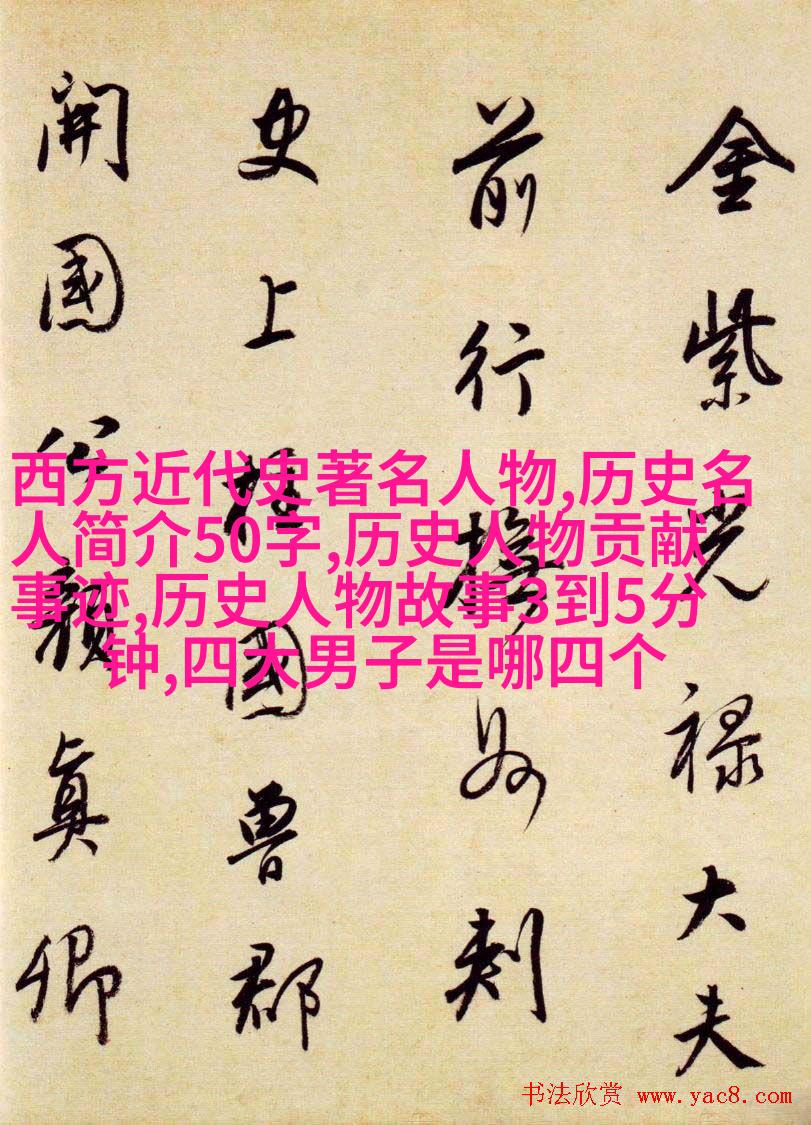 金紫光禄大夫
前行撫州刺
史上柱國魯郡
開國公顏真卿
西方近代史著名人物,历史名
人简介50字,历史人物贡献
事迹,历史人物故事3到5分
钟,四大男子是哪四个
书法欣赏 www.yac8.com